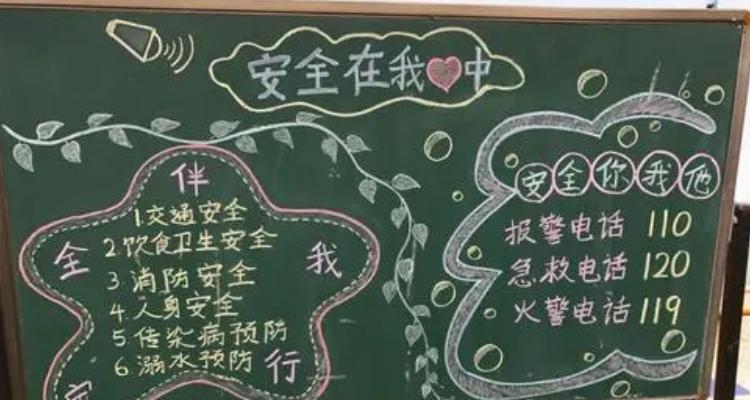 安全在我中
伴
1.交通安全
2.饮食卫生安全
全
我
3.消防安全
4.人身安全
5传染病预防
6溺水预防
行
安
安全你我他
报警电话 110
急救电话 120
火警电话 119